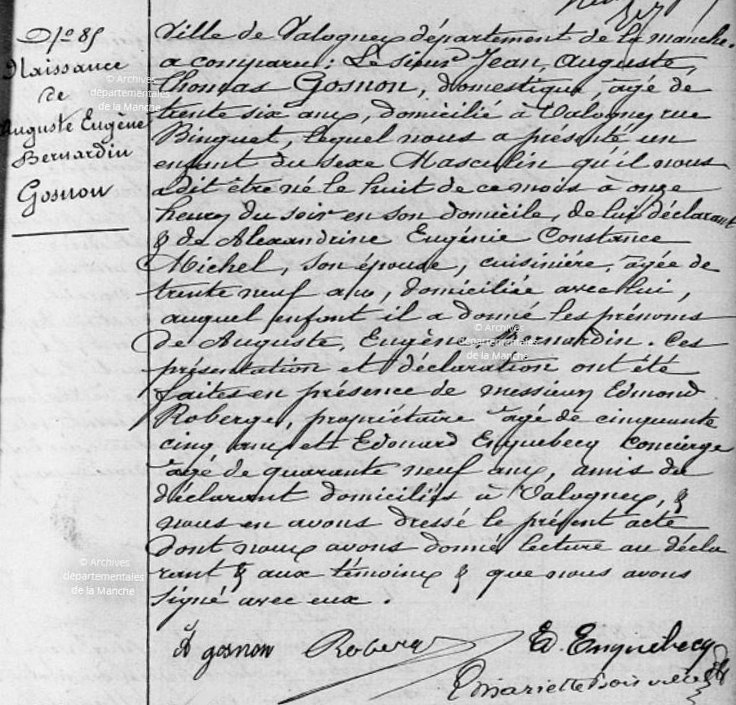 N° 85
Naissance
de
Auguste Eugène
Bernardin
Gosnon
Ville de Valognes département de la manche.
a comparu : Le sieur Jean, Auguste,
Thomas Gosnon, domestique, âgé de
trente six ans, domicilié à Valognes rue
Binguet, lequel nous a présenté un
enfant du sexe Masculin qu'il nous
a dit être né le huit de ce mois à onze
heures du soir en son domicile, de lui déclarant
& de Alexandrine Eugénie Constance
Michel, son épouse, cuisinière, âgée de
trente neuf ans, domiciliée avec lui,
auquel enfant il a donné les prénoms
de Auguste, Eugène, Bernardin. Ces
présentation et déclaration ont été
faites en présence de messieurs Edmond
Roberge, propriétaire âgé de cinquante
cinq ans et Edouard Enquebecq Concierge
âgé de quarante neuf ans, amis du
déclarant domiciliés à Valognes, &
nous en avons dressé le présent acte
dont nous avons donné lecture au décla
rant & aux témoins & que nous avons
signé avec eux.
A gosnon Roberge Ed. Enquebecq
© Archives
départementales
de la Manche
© Archives
départementales
de la Manche
© Archives
départementales
de la Manche